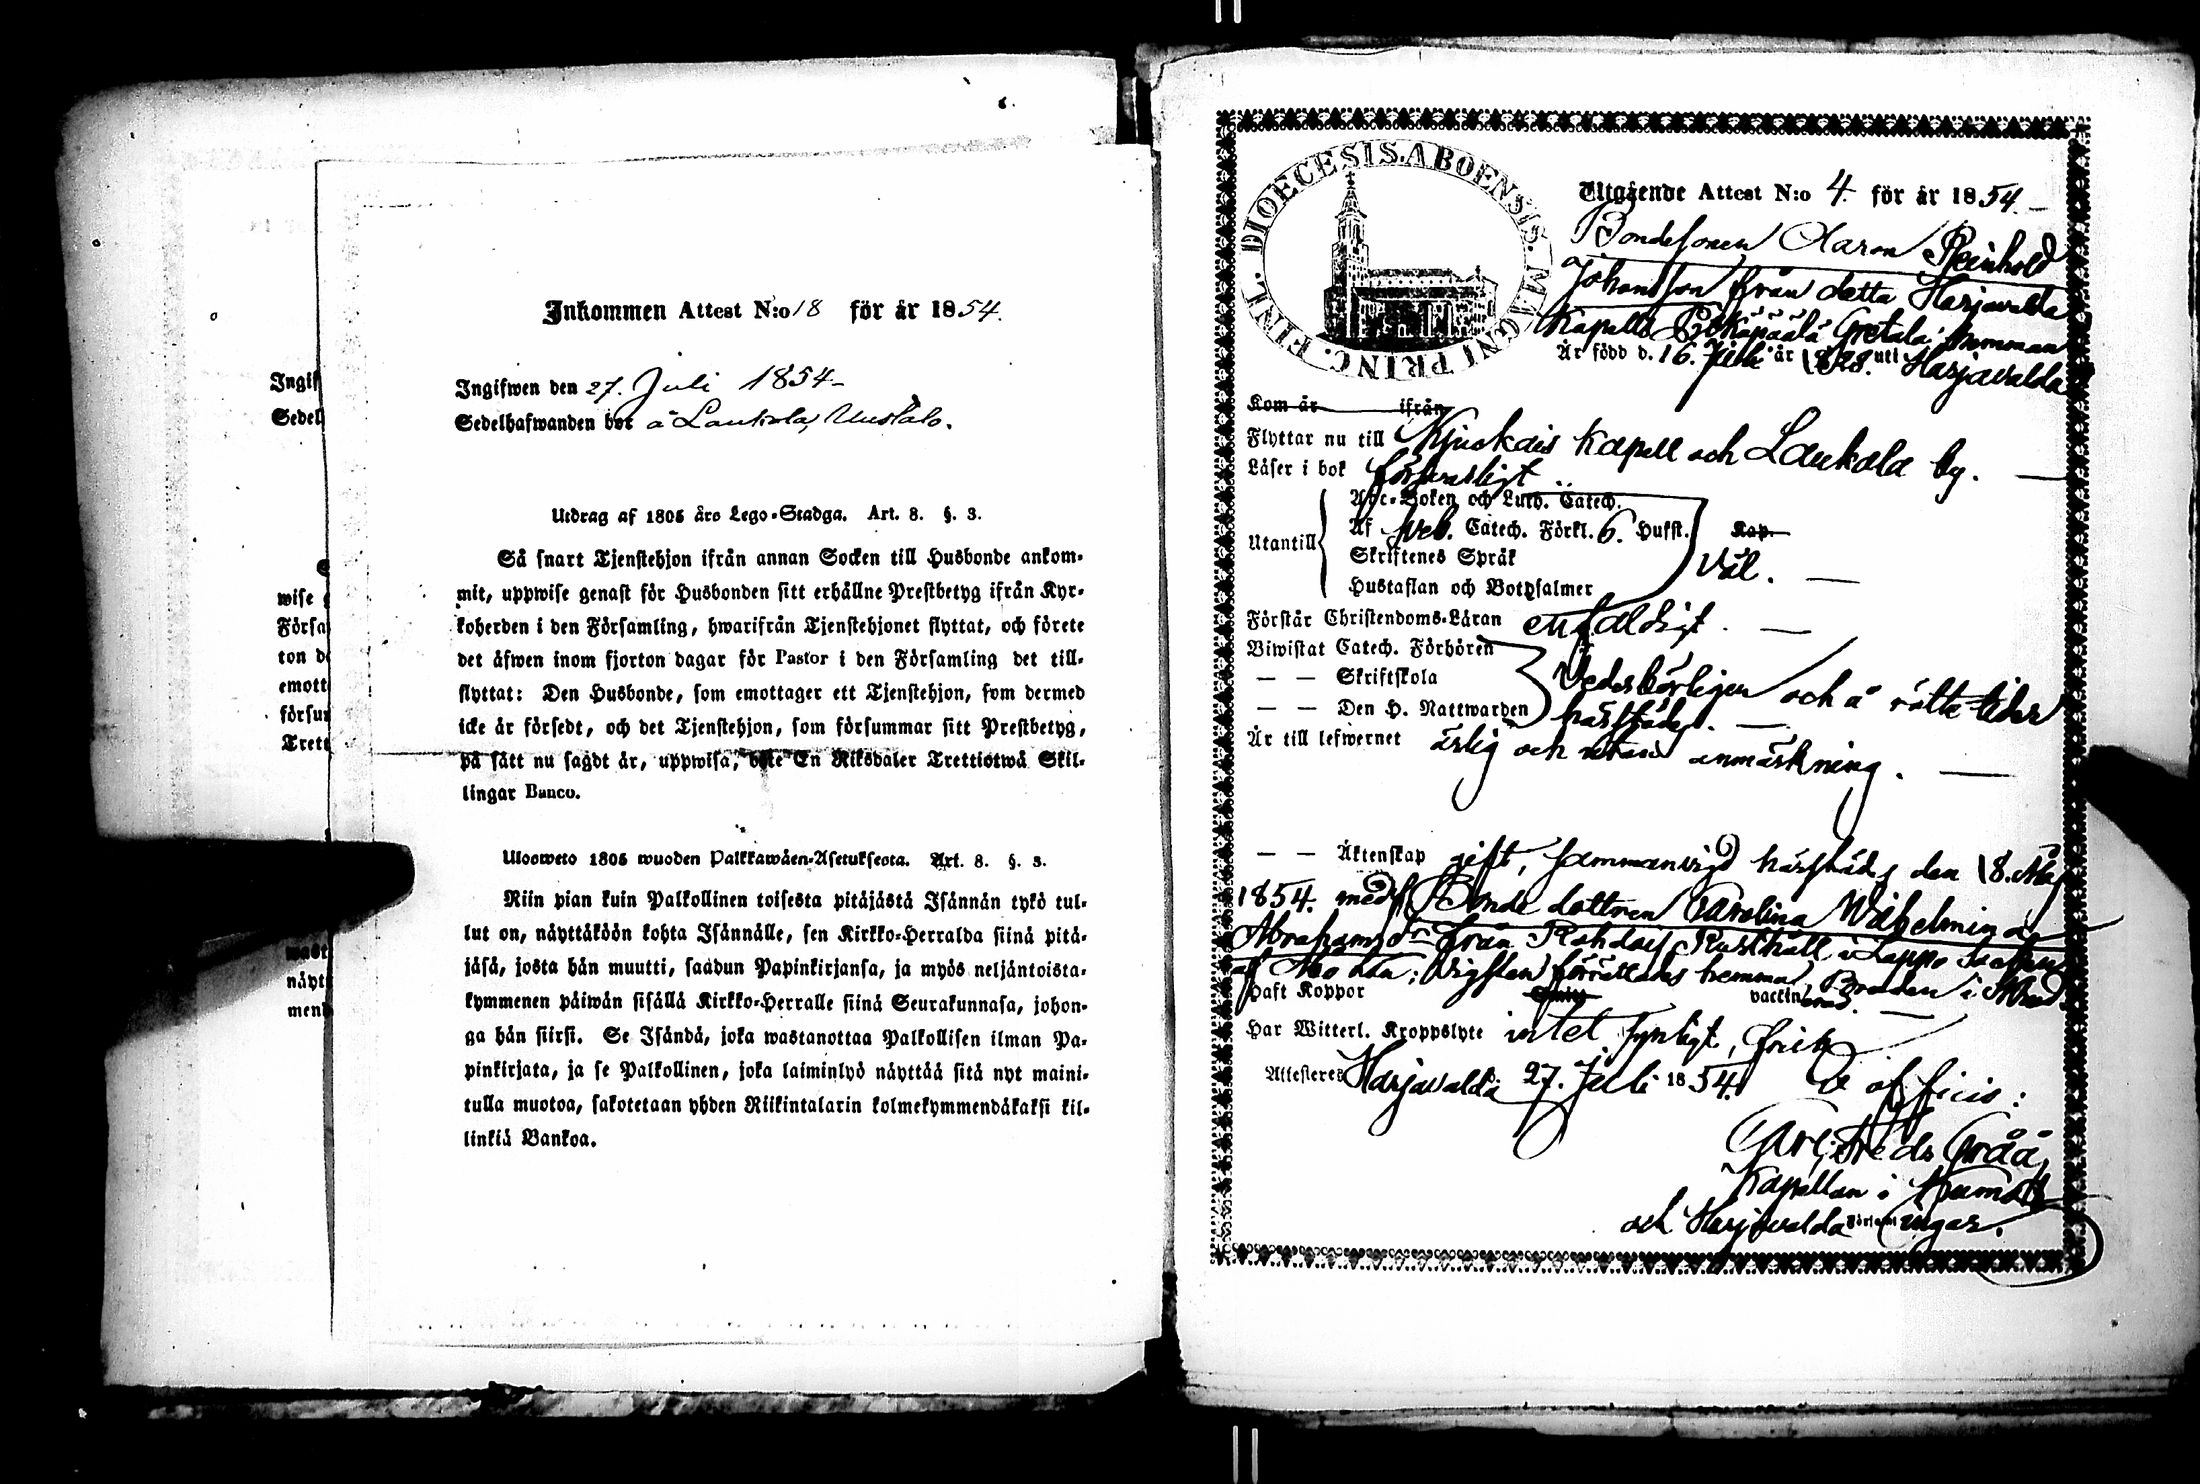 Inkommen Attest N:o 18 för år 1854.
Ingifwen den 27. Juli 1854-
Sedelhafwanden bor å Laukola, Uustalo.
Utdrag af 1805 års Lego-Stadga. Art. 8. §. 3.
Så snart Tjenstehjon ifrån annan Socken till Husbonde ankom-
mit, uppwise genast för Husbonden sitt erhållne Prestbetyg ifrån Kyr-
koherden i den Församling, hwarifrån Tjenstehjonet flyttat, och förete
det äfwen inom fjorton dagar för Pastor i den Församling det till-
flyttat: Den Husbonde, som emottager ett Tjenstehjon, som dermed
icke är försedt, och det Tjenstehjon, som försummar sitt Prestbetyg,
på sätt nu sagdt är, uppwisa, böte En Riksdaler Trettiotwå Skil-
lingar Banco.
Ulosweto 1805 wuoden Palkkawäen-Asetuksesta. Art. 8. §. 3.
Niin pian kuin Palkollinen toisesta pitäjästä Isännän tykö tul-
lut on, näyttäköön kohta Isännälle, sen Kirkko-Herralda siinä pitä-
jäsä, josta hän muutti, saadun Papinkirjansa, ja myös neljäntoista-
kymmenen päiwän sisällä Kirkko-Herralle siinä Seurakunnasa, johon-
ga hän siirsi. Se Isändä, joka wastanottaa Palkollisen ilman Pa-
pinkirjata, ja se Palkollinen, joka laiminlyö näyttää sitä nyt maini-
tulla muotoa, sakotetaan yhden Riikintalarin kolmekymmendäkaksi kil-
linkiä Bankoa.
Ingif
Sedel
wise
Förfa
ton de
emott
försum
Trett
näyt
men
DIOECESIS. ABOENSIS. MAGNI PRINC. FINL.
Utgående Attest N:o 4. för år 1854.
Bondesonen Aaron Reinhold
Johansson från detta Harjavalda
Kapells Pirkapäälä Gretala hemman
Är född d. 16. Juli år 1828. uti Harjavalda
Kom år ifrån
Flyttar nu till Kjuckais Kapell och Laukola by.
Läser i bok försvarligt
Utantill Abc-Boken och Luth. Catech.
Af Sveb. Catech. Förkl. 6. Hufst. Kap.
Skriftenes Språk väl.
Hustaflan och Botpsalmer
Förstår Christendoms-Läran enfaldigt.
Biwistat Catech. Förhören
— — Skriftskola vederbörligen och å rätta tider
— — Den H. Nattwarden härstädes.
Är till lefwernet ärlig och utan anmärkning.
— — Äktenskap gift, sammanvigd härstädes den 18. Maj
1854. med Bonde dottren Carolina Wilhelmina
Abrahamsdr från Rustháll i Lappo
af vigseln förrättades hemma
Haft Koppor vaccinerad.
Har Witterl. Kroppslyte intet synligt, frich
Attesteras Harjavalda 27. Juli 1854. Ex officio:
Carl Gråå,
Kapellan i Kumo
och Harjavalda Församlingar.